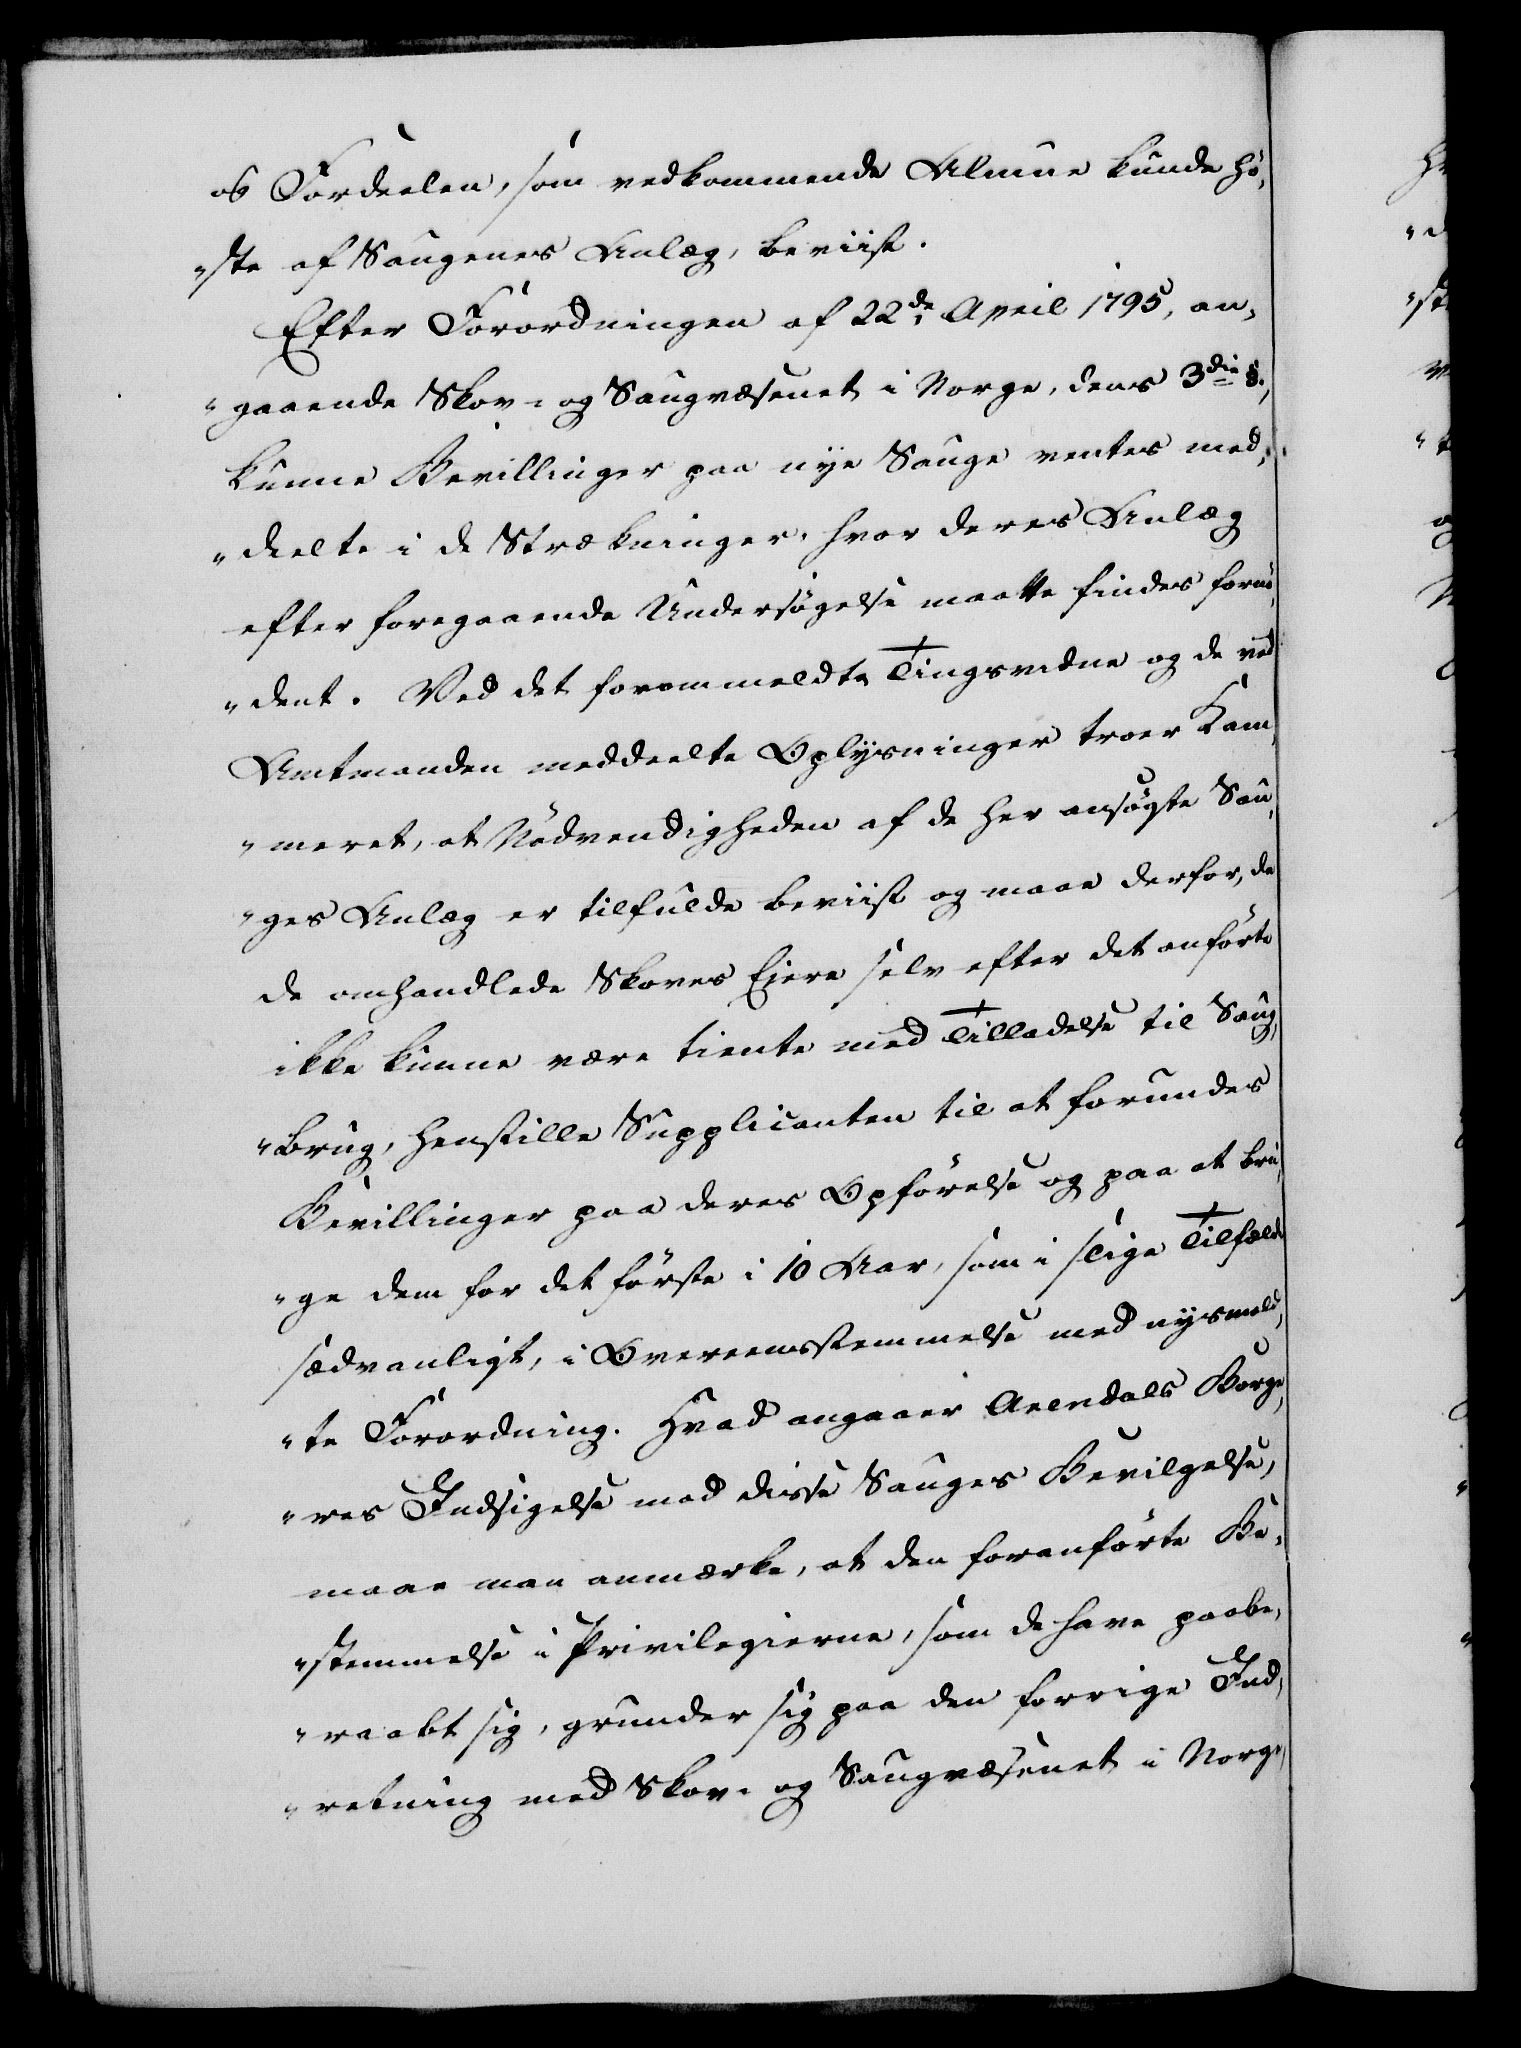 og Fordeelen, som vedkommende Almue kunde hø-
"ste af Saugenes Anlæg, beviist.
Efter Forordningen af 22de April 1795, an-
"gaaende Skov- og Saugvæsenet i Norge, dens 3die §,
kunne Bevillinger paa nye Sauge ventes med-
"deelte i de Strækninger, hvor deres Anlæg
efter foregaaende Undersøgelse maatte findes fornø-
"dent. Ved det forommeldte Tingsvidne og de ved
Amtmanden meddeelte Oplysninger troer Kam-
"meret, at Nødvendigheden af de her ansøgte Sau-
"ges Anlæg er tilfulde beviist og maae derfor, da
de omhandlede Skoves Ejere selv efter det anførte
ikke kunne være tiente med Tilladelse til Saug-
"brug, henstille Supplicanten til at forundes
Bevillinger paa deres Opførelse og paa at bru-
"ge dem for det første i 10 Aar, som i slige Tilfælde
sædvanligt, i Overeensstemmelse med nysmeld-
"te Forordning. Hvad angaaer Arendals Borge-
"res Indsigelse mod disse Sauges Bevilgelse,
maae man anmærke, at den foranførte Be-
"stemmelse i Privilegierne, som de have paabe-
"raabt sig, grunder sig paa den forrige Ind-
"retning med Skov- og Saugvæsenet i Norge,